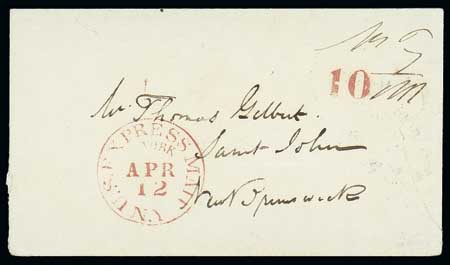 10
Mr Thomas Gilbert.
Saint John
New Brunswick
U.S. EXPRESS MAIL
N.Y.
YORK
APR
12